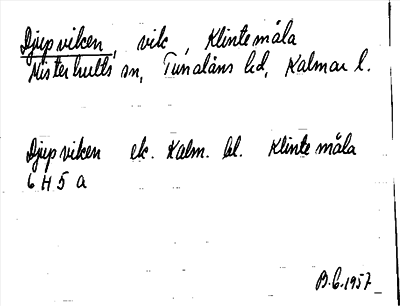 Djupviken, vik, Klintemåla
Misterhults sn, Tunaläns hd, Kalmar l.
Djupviken ek. Kalm. bl. Klintemåla
6 H 5 a
B.G. 1957